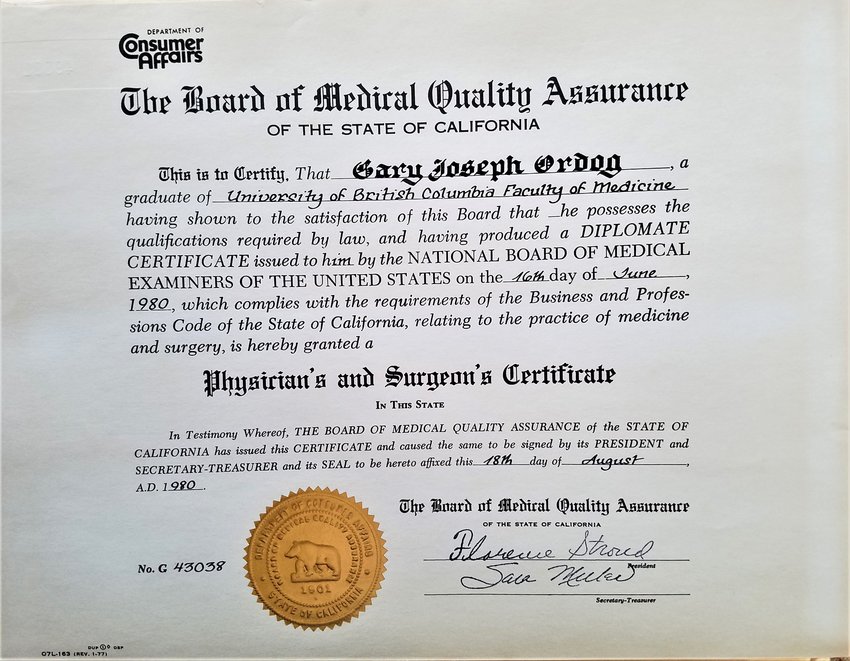 DEPARTMENT OF
Consumer
Affairs
The Board of Medical Quality Assurance
OF THE STATE OF CALIFORNIA
This is to Certify, That Gary Joseph Ordog, a
graduate of University of British Columbia Faculty of Medicine
having shown to the satisfaction of this Board that _he possesses the
qualifications required by law, and having produced a DIPLOMATE
CERTIFICATE issued to him by the NATIONAL BOARD OF MEDICAL
EXAMINERS OF THE UNITED STATES on the 16th day of June,
1980, which complies with the requirements of the Business and Profes-
sions Code of the State of California, relating to the practice of medicine
and surgery, is hereby granted a
Physician's and Surgeon's Certificate
IN THIS STATE
In Testimony Whereof, THE BOARD OF MEDICAL QUALITY ASSURANCE of the STATE OF
CALIFORNIA has issued this CERTIFICATE and caused the same to be signed by its PRESIDENT and
SECRETARY-TREASURER and its SEAL to be hereto affixed this 18th day of August,
A.D. 1980.
The Board of Medical Quality Assurance
OF THE STATE OF CALIFORNIA
Florence Stroud
President
Secretary-Treasurer
No. G 43038
DEPARTMENT OF CONSUMER AFFAIRS
BOARD OF MEDICAL QUALITY ASSURANCE
1901
STATE OF CALIFORNIA
OSP
07L-163 (REV. 1-77)